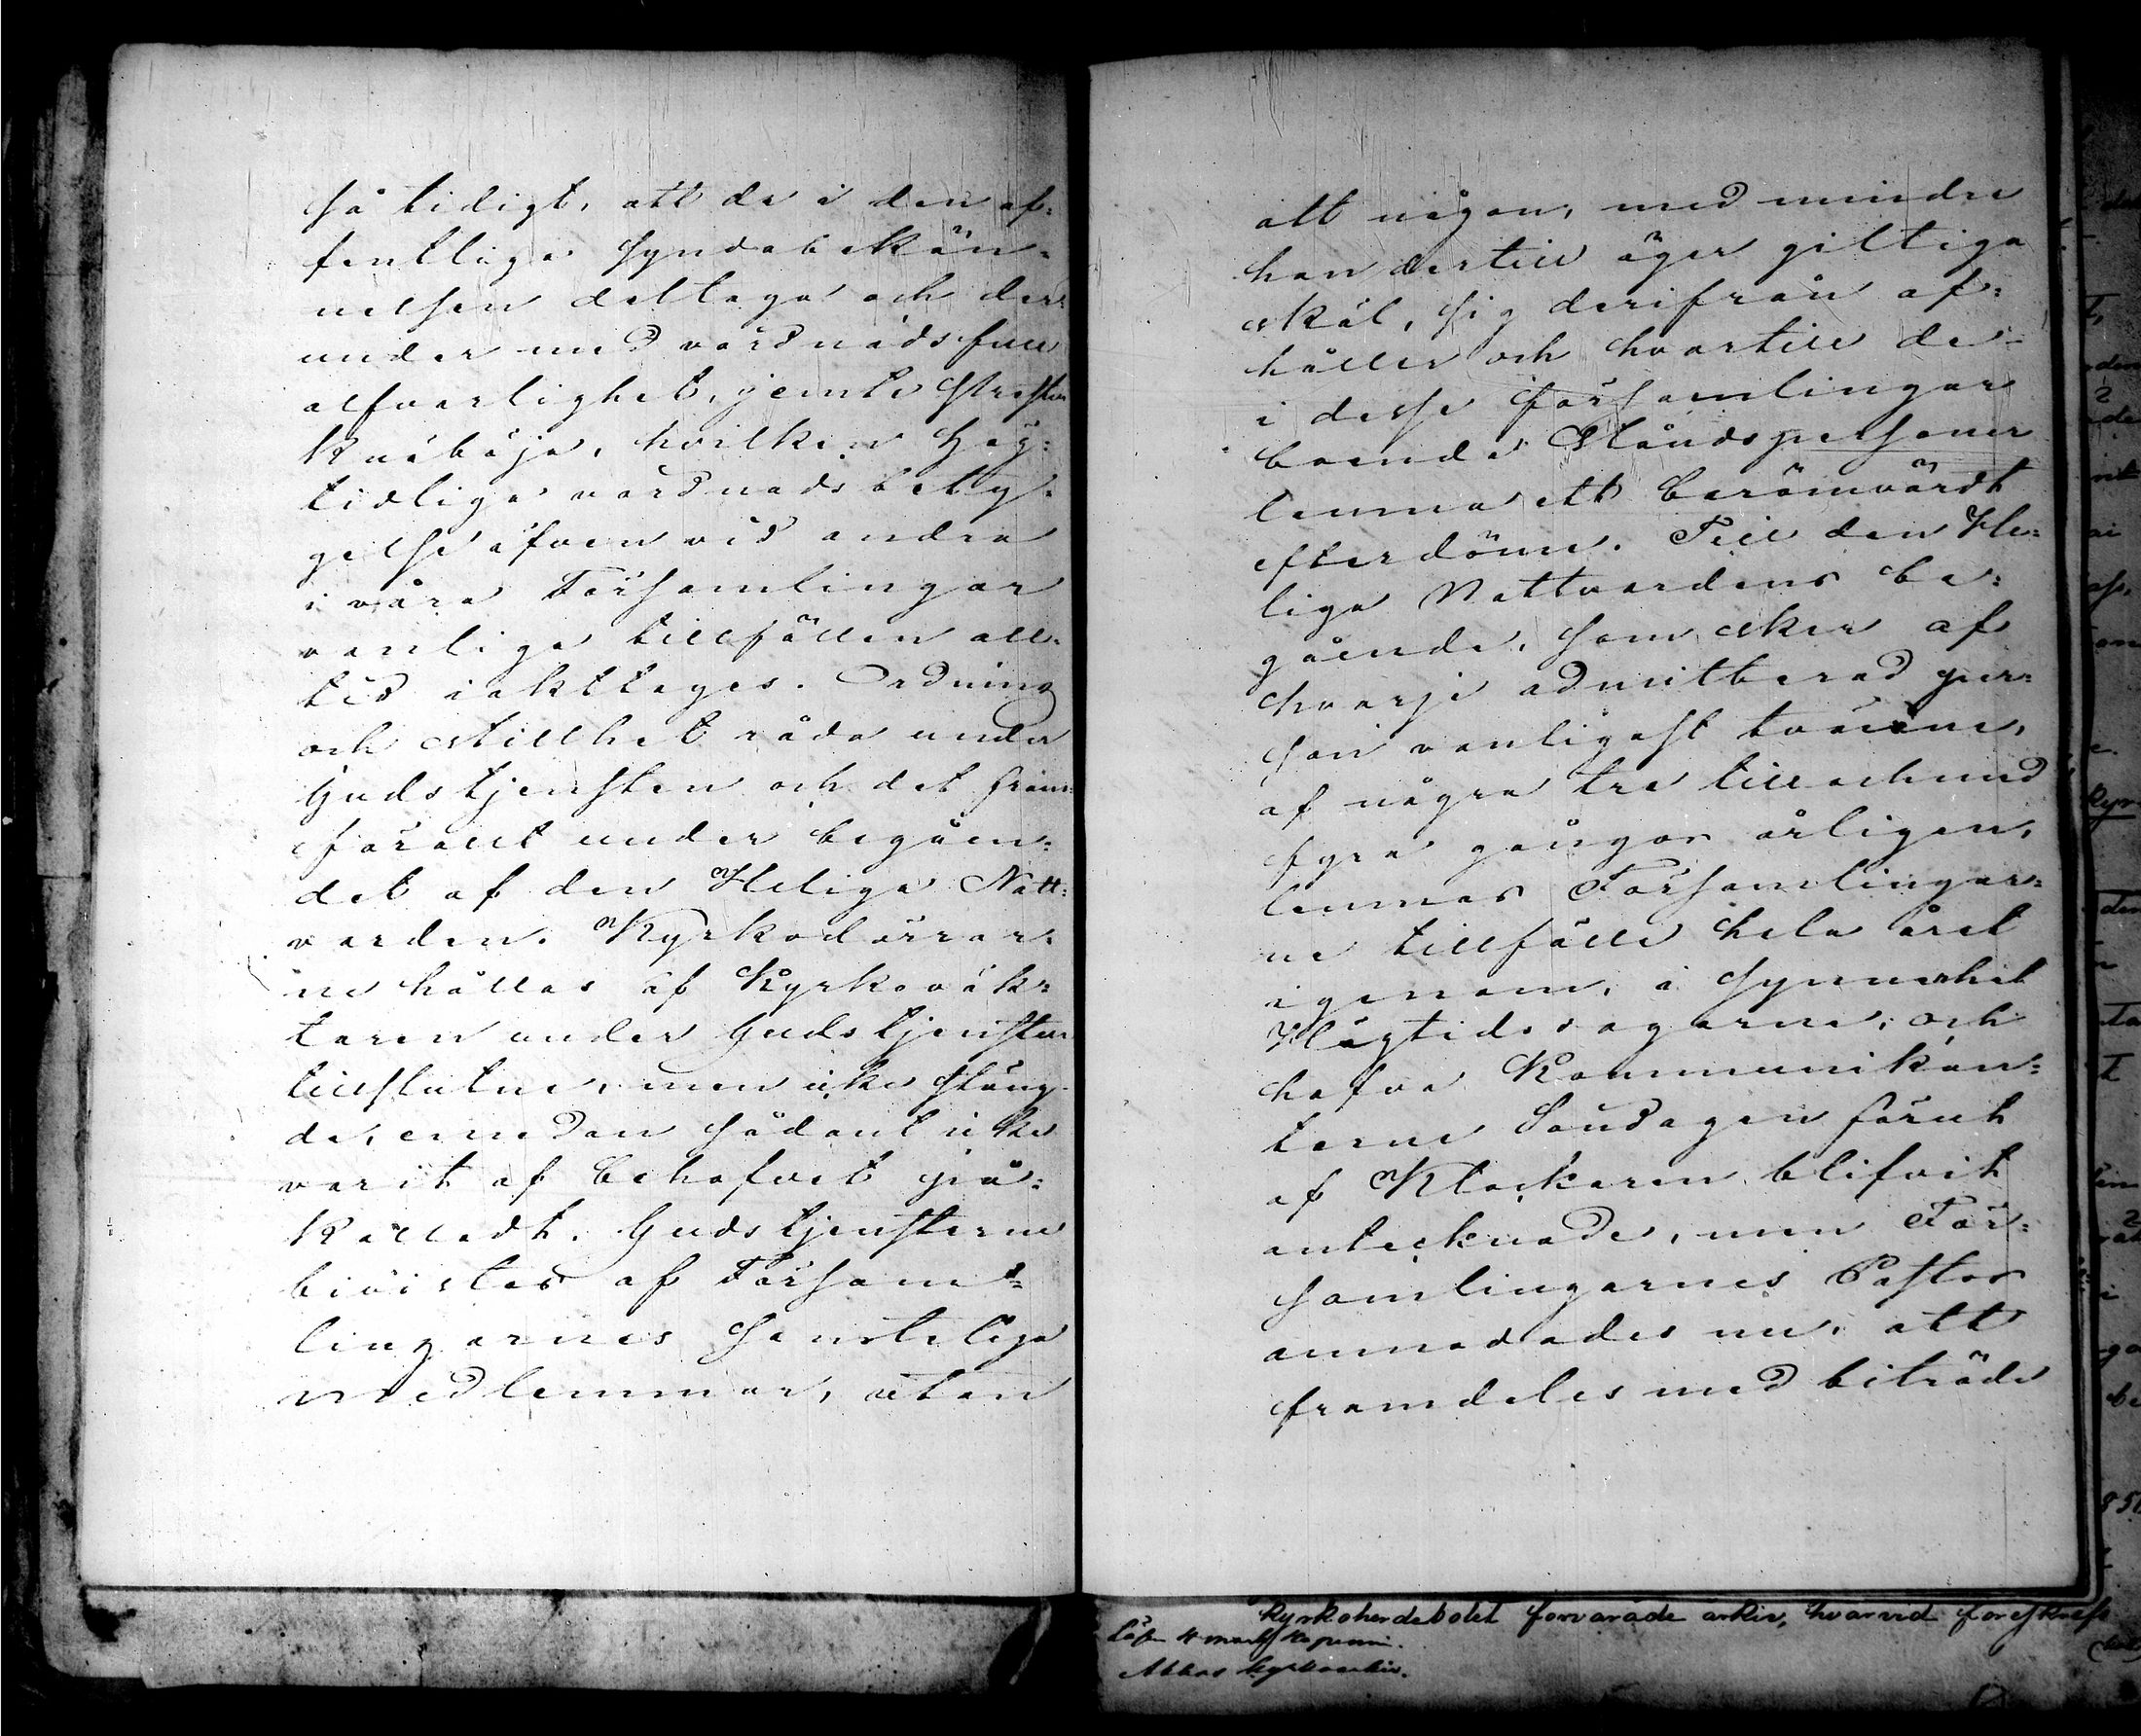 så tidigt, att de i den of:
fentliga syndabekän:
nelsen deltaga och der
under med vördnadsfull
alfvarlighet, jemte Presten
knäböja, hvilken hög:
tidliga vördnadsbety:
gelse äfven vid andra
i våra Församlingar
vanliga tillfällen all:
tid iakttages. Ordning
och stillhet råda under
Gudstjensten och det fram:
förallt under begåen:
det af den Heliga Natt:
varden. Kyrkodörrar:
ne hållas af Kyrkoväk:
taren under Gudstjensten
tillslutne, men icke stäng:
de, emedan sådant icke
varit af behofvet på:
kalladt. Gudstjensterne
bivistas af Försam:
lingarnes samteliga
medlemmar, utan
att någon, med mindre
han dertill äger giltiga
skäl, sig derifrån af:
håller och hvartill de
i desse församlingar
boende Ståndspersoner
lemna ett berömvärdt
efterdöme. Till den He:
liga Nattvardens be:
gående, som sker af
hvarje admitterad per:
son vanligast tvänne,
af några tre till och med
fyra gånger årligen,
lemnas Församlingar:
ne tillfälle hela året
igenom, i synnerhet
Högtidsdagarne, och
hafva Kommunikan:
terne Söndagen förut
af Klockaren blifvit
antecknade, men För:
samlingarnes Pastor
anmodades nu, att
framdeles med biträde
kyrkoherdebolet förvarade arkiv, hvarvid föreskrefs
kyrkoarkiv.